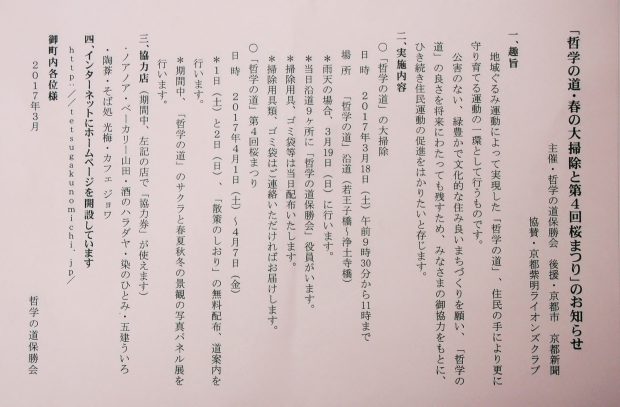 「哲学の道・春の大掃除と第４回桜まつり」のお知らせ
主催・哲学の道保勝会　後援・京都市　京都新聞
協賛・京都紫明ライオンズクラブ
一、趣旨
地域ぐるみ運動によって実現した「哲学の道」、住民の手により更に
守り育てる運動の一環として行うものです。
公害のない、緑豊かで文化的な住み良いまちづくりを願い、「哲学の
道」の良さを将来にわたっても残すため、みなさまの御協力をもとに、
ひき続き住民運動の促進をはかりたいと存じます。
二、実施内容
〇「哲学の道」の大掃除
日時　２０１７年３月18日（土）午前９時30分から11時まで
場所　「哲学の道」沿道（若王子橋～浄土寺橋）
＊雨天の場合、３月19日（日）に行います。
＊当日沿道９ヶ所に「哲学の道保勝会」役員がいます。
＊掃除用具、ゴミ袋等は当日配布いたします。
＊掃除用具類、ゴミ袋はご連絡いただければお届けします。
〇「哲学の道」第４回桜まつり
日時　２０１７年４月１日（土）～４月７日（金）
＊１日（土）と２日（日）、「散策のしおり」の無料配布、道案内を
行います。
＊期間中、「哲学の道」のサクラと春夏秋冬の景観の写真パネル展を
行います。
三、協力店（期間中、左記の店で「協力券」が使えます）
・ノアノア・ベーカリー山田・酒のハラダヤ・染のひとみ・五建ういろ
・陶葊・そば処 光梅・カフェ ジョワ
四、インターネットにホームページを開設しています
http://tetsugakunomichi.jp/
御町内各位様
２０１７年３月
哲学の道保勝会